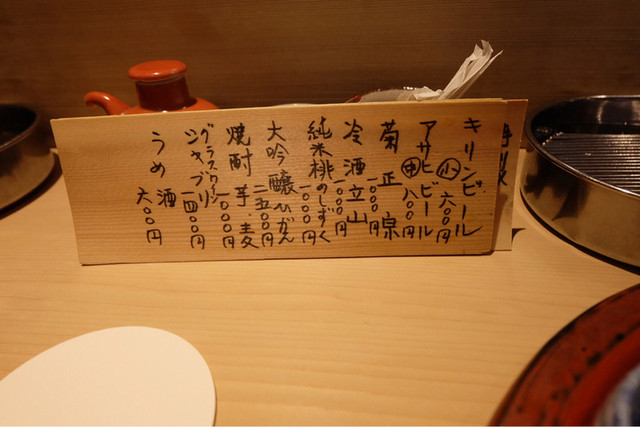 キリンビール㋛六〇〇円
アサヒビール㊥八〇〇円
菊正宗一〇〇〇円
冷酒立山一〇〇〇円
純米桃のしずく一〇〇〇円
大吟醸ひがん二五〇〇円
焼酎芋・麦一〇〇〇円
グラスワイン
シャブリ一四〇〇円
うめ酒六〇〇円